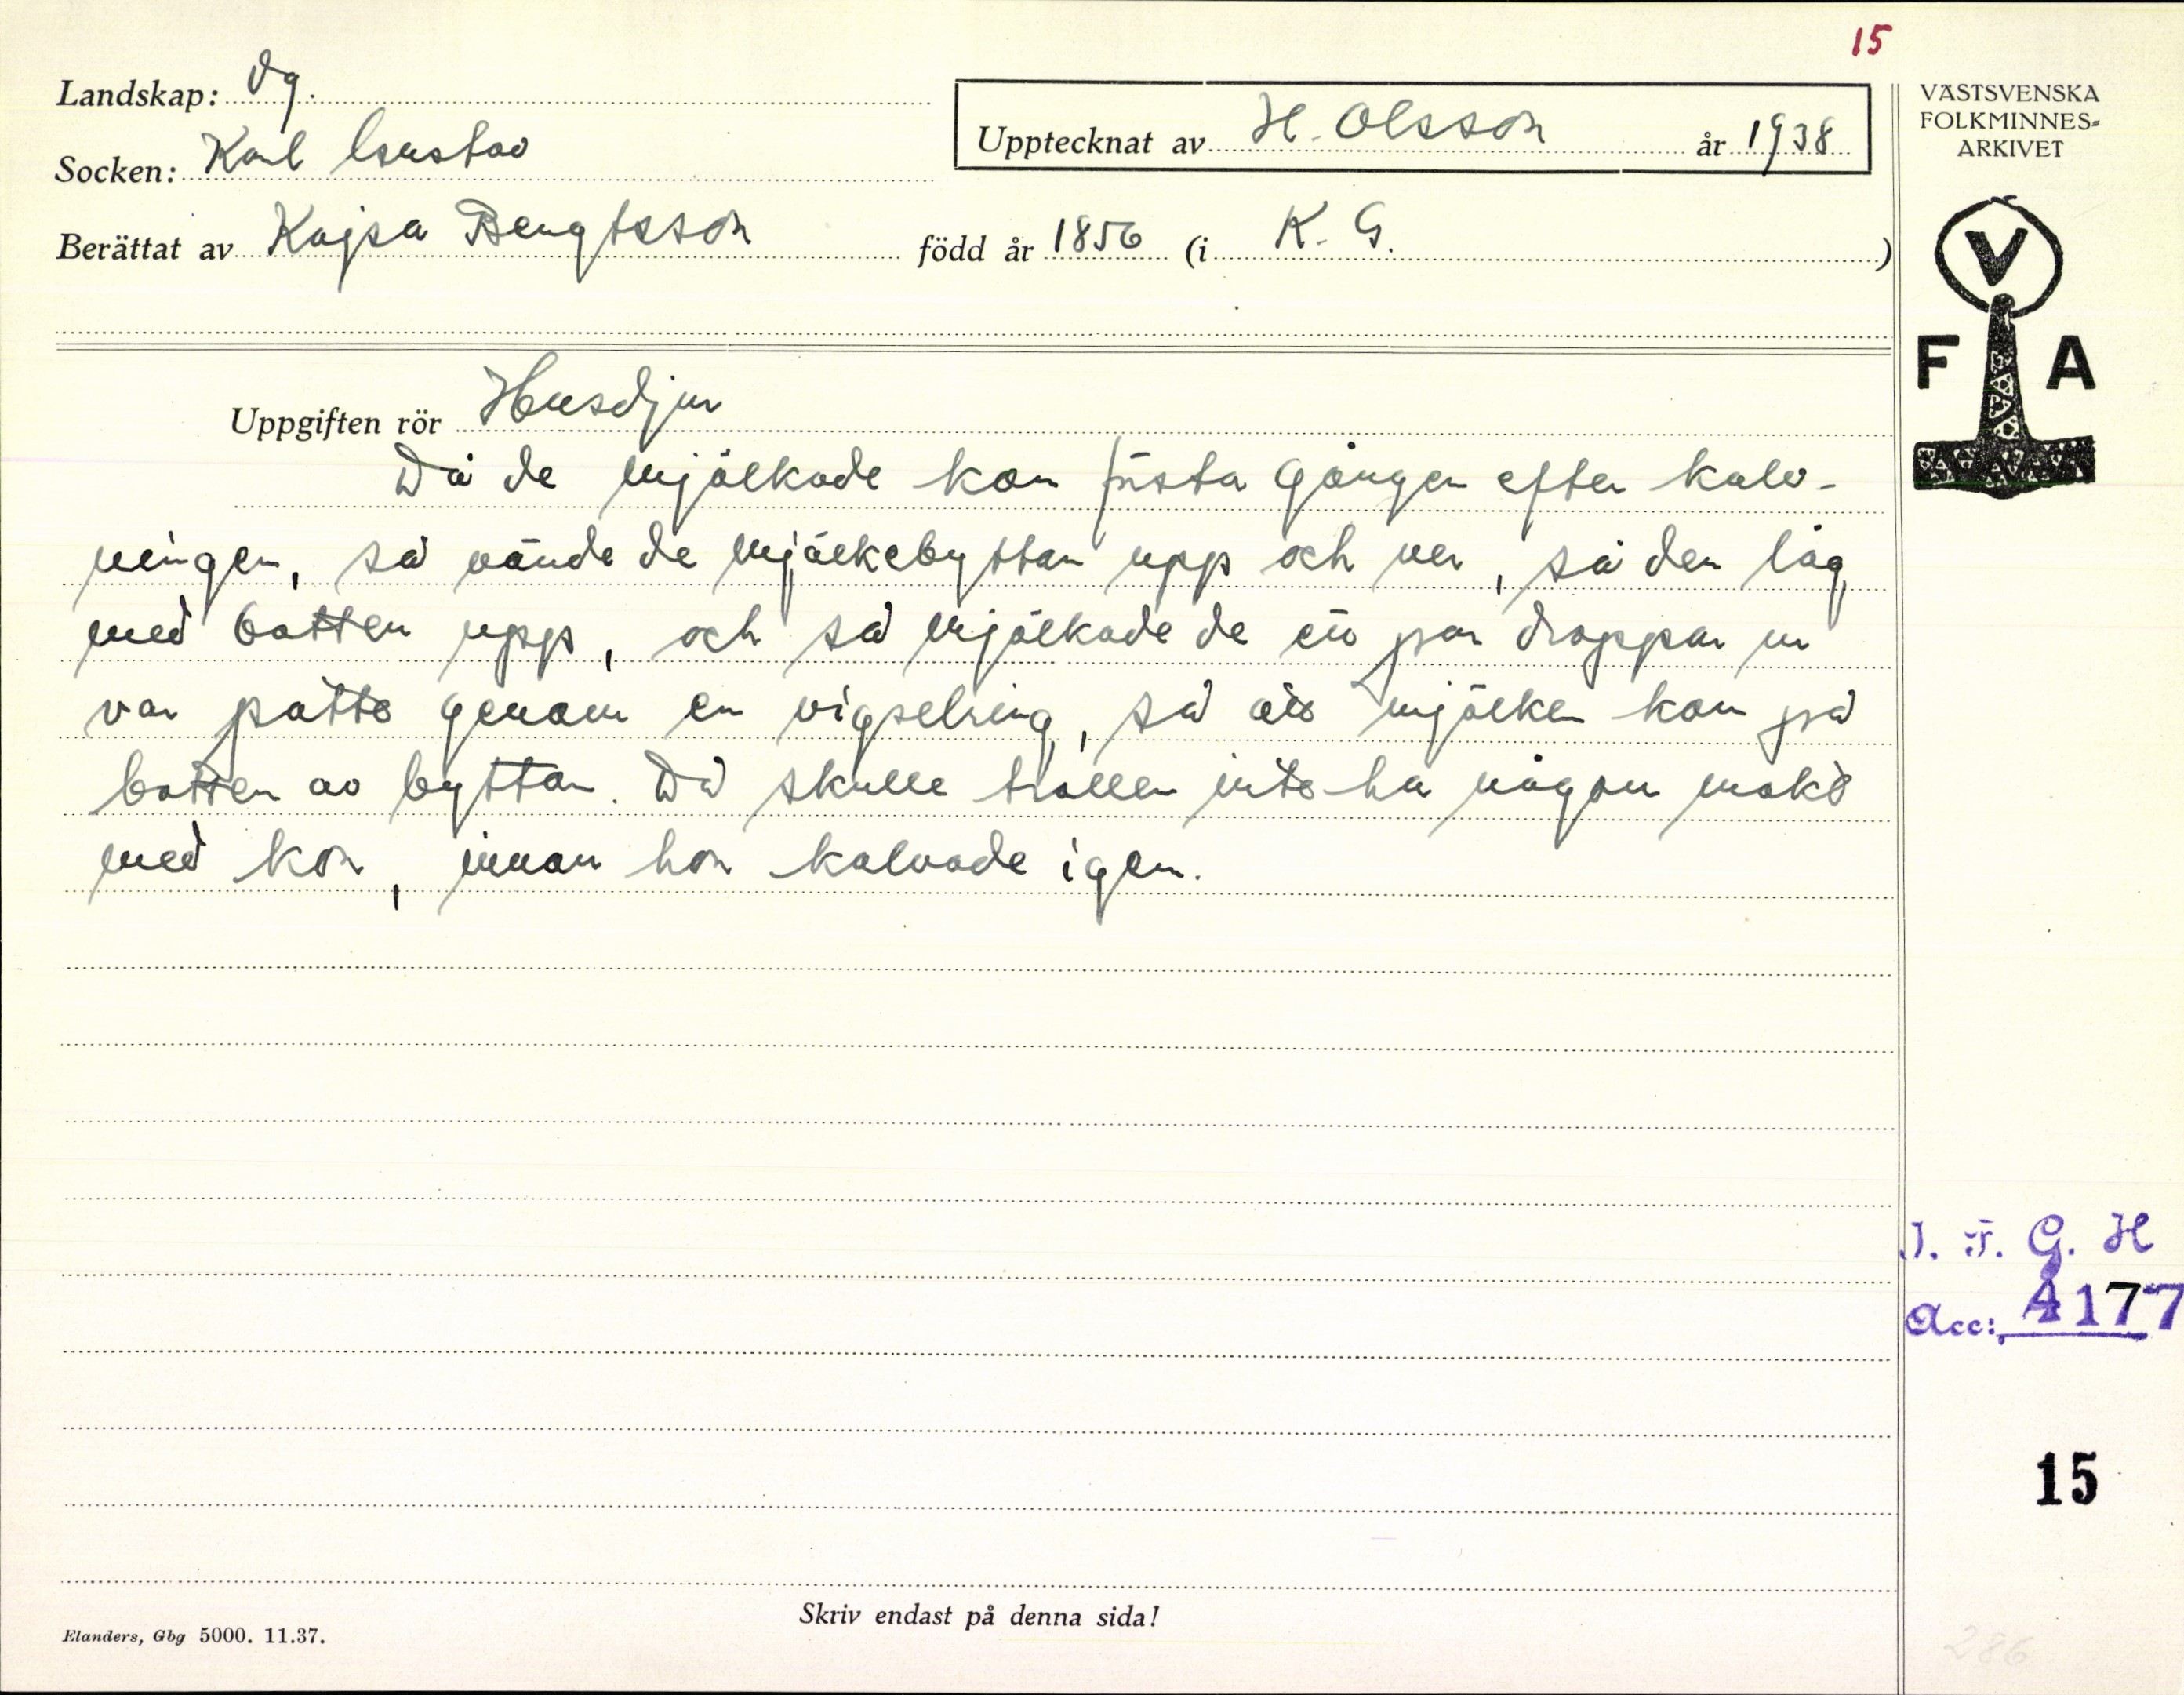 15
Landskap: Vg.
Socken: Karl Gustav
Berättat av Kajsa Bengtsson född år 1856 (i K. G. )
Upptecknat av H. Olsson år 1938
VÄSTSVENSKA
FOLKMINNES-
ARKIVET
V
F A
Uppgiften rör Husdjur
Då de mjölkade kon första gången efter kalv-
ningen, så vände de mjölkebyttan upp och ner, så den låg
med botten upp, och så mjölkade de ett par droppar ur
var patte genom en vigselring, så att mjölken kom på
botten av byttan. Då skulle trollen inte ha någon makt
med kon, innan hon kalvade igen.
I. F. G. H
Acc: 4177
15
Skriv endast på denna sida!
Elanders, Gbg 5000. 11.37.
286